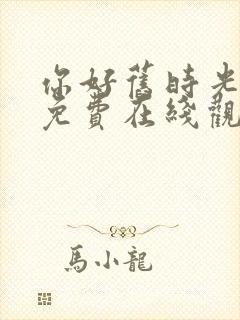 你好舊時光
免費在綫觀
馬小龍